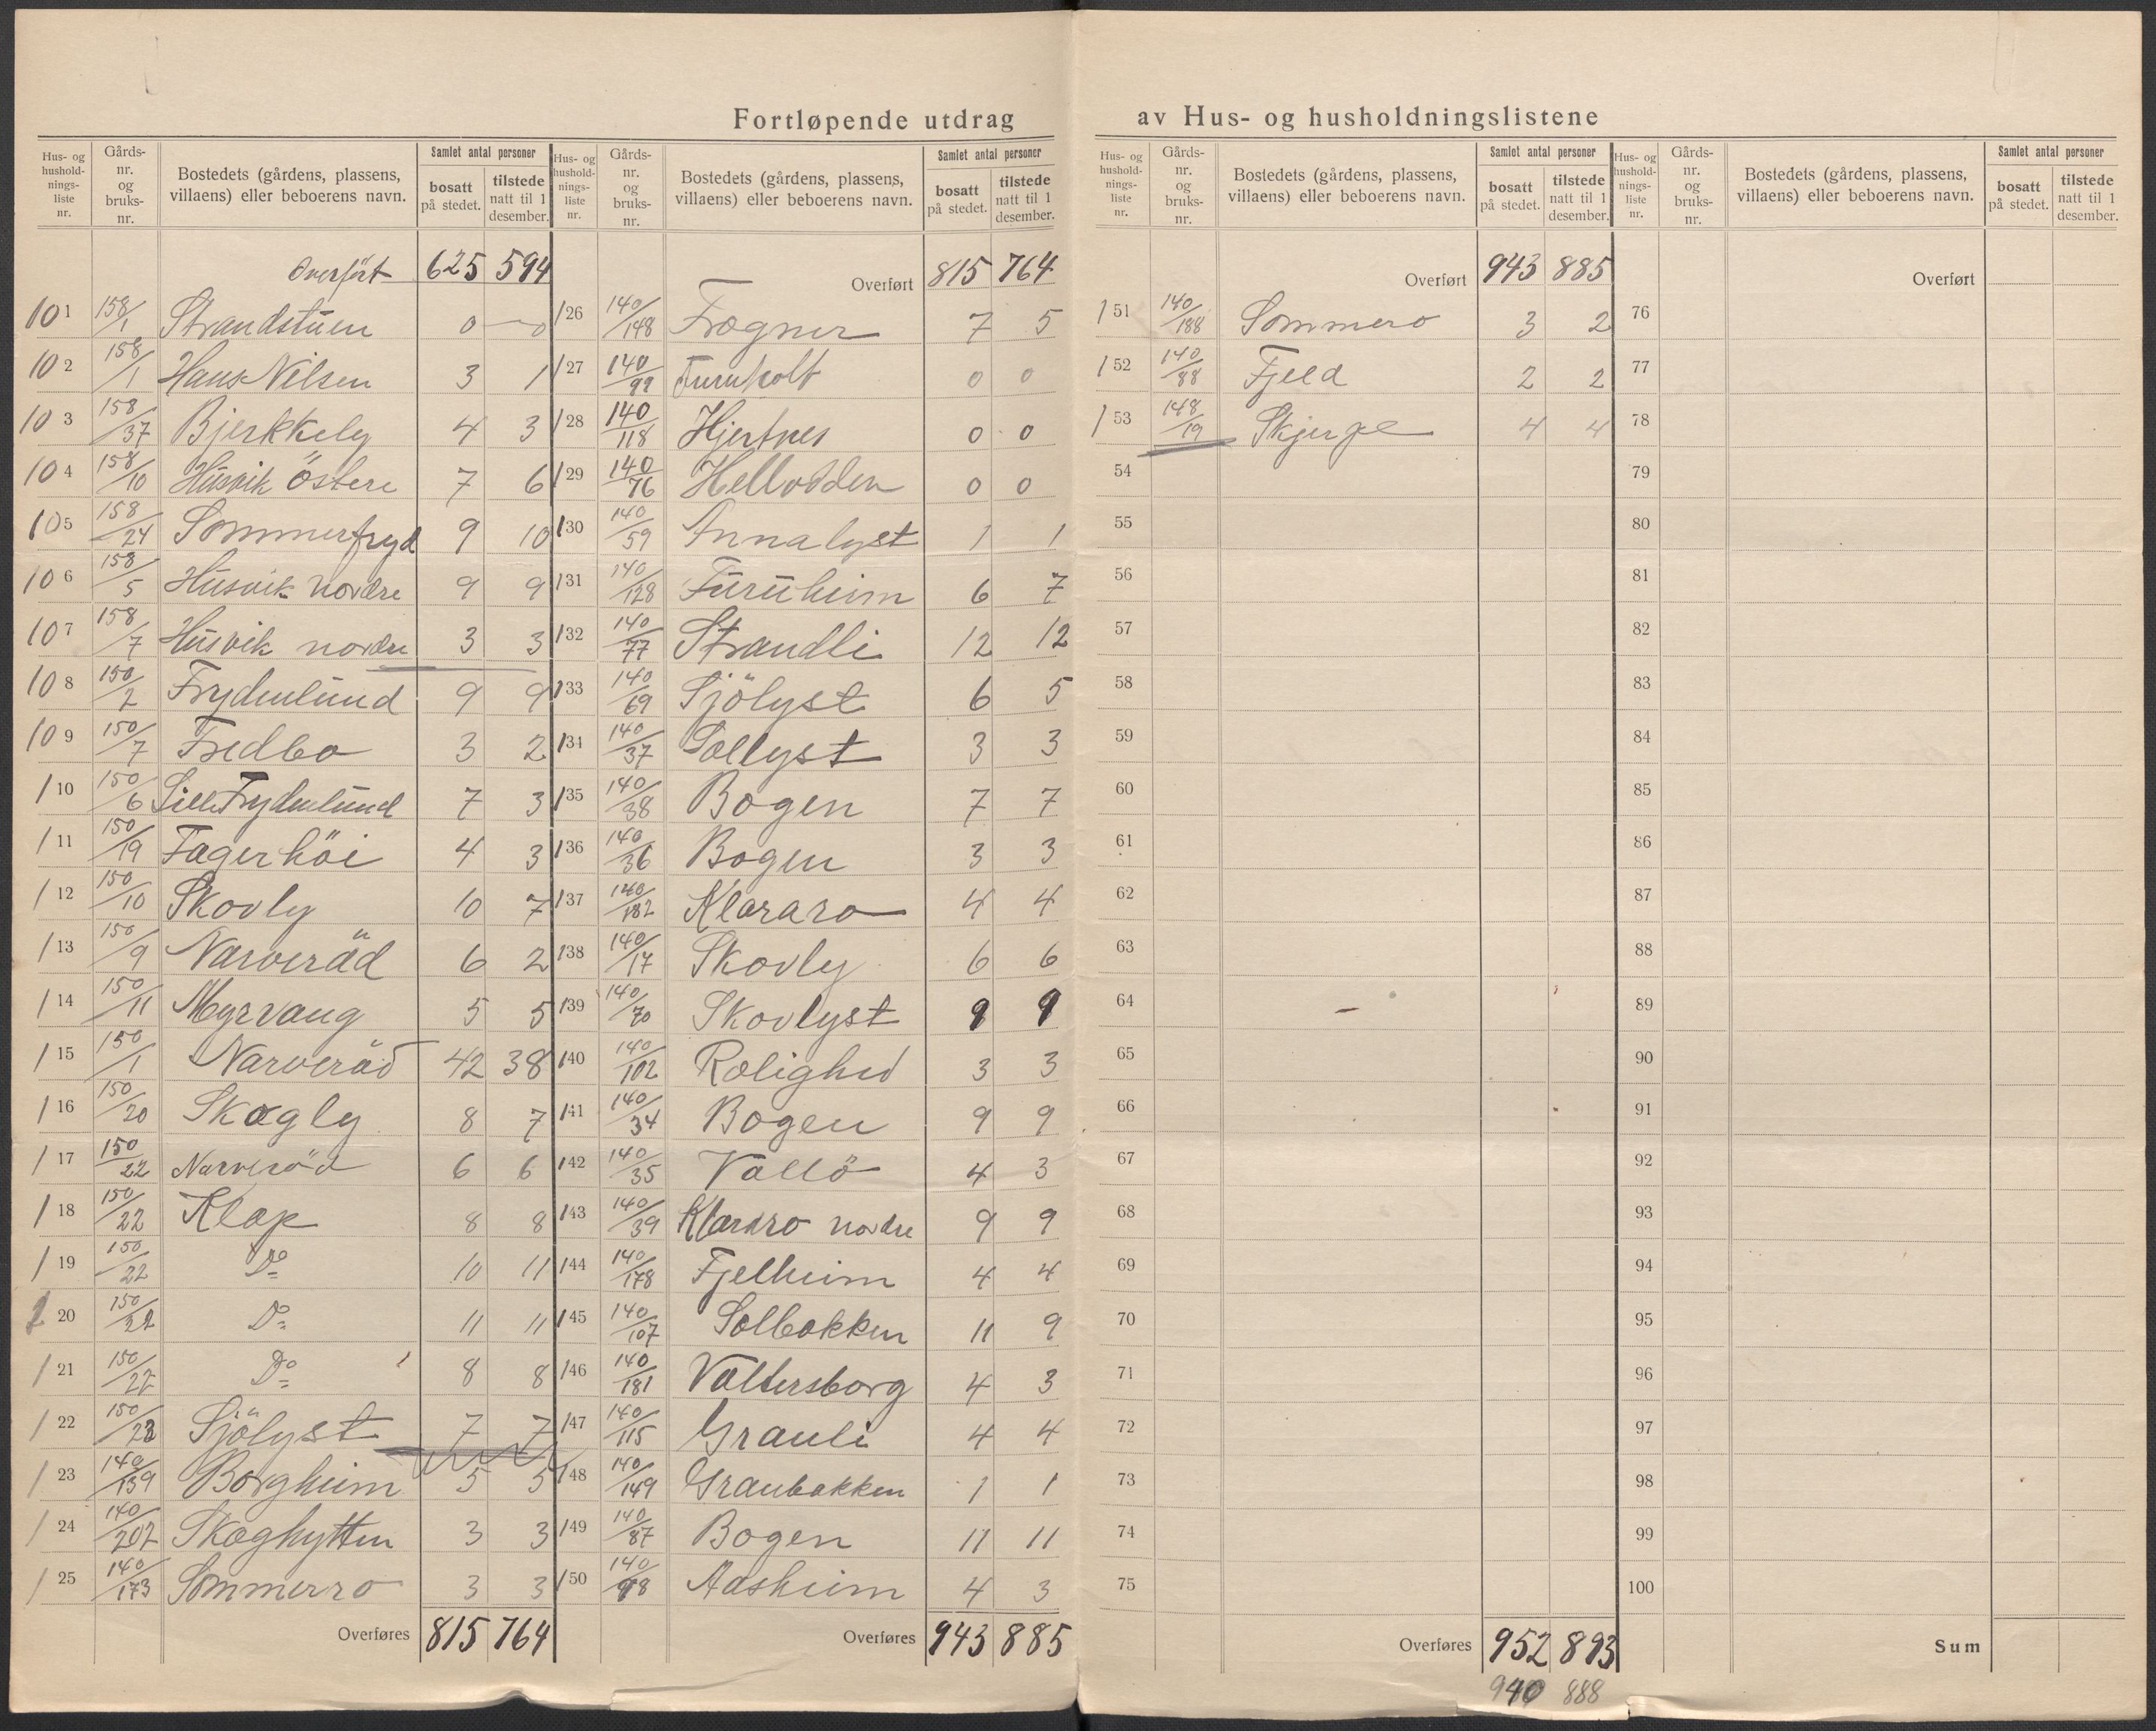 Fortløpende utdrag av Hus- og husholdningslistene
Hus- og hushold-nings-liste nr. Gårds-nr. og bruks-nr. Bostedets (gårdens, plassens, villaens) eller beboerens navn. Samlet antal personer bosatt på stedet. tilstede natt til 1 desember.
Overført 625 594
101 158/1 Strandstuen 0 0
102 158/1 Hans Nilsen 3 1
103 158/37 Bjerkkely 4 3
104 158/10 Husvik östere 7 6
105 158/24 Sommerfryd 9 10
106 158/5 Husvik nordre 9 9
107 158/7 Husvik nordre 3 3
108 150/2 Frydenlund 9 9
109 150/7 Fredbo 3 2
110 150/6 Lille Frydenlund 7 3
111 150/19 Fagerhöi 4 3
112 150/10 Skovly 10 7
113 150/9 Narveröd 6 2
114 150/11 Myrvang 5 5
115 150/1 Narveröd 42 38
116 150/20 Skogly 8 7
117 150/22 Narveröd 6 6
118 150/22 Klop 8 8
119 150/22 Do 10 11
120 150/22 Do 11 11
121 150/22 Do 8 8
122 150/23 Sjölyst 7 7
123 140/139 Borgheim 5 5
124 140/202 Skoghytten 3 3
125 140/173 Sommerro 3 3
Overføres 815 764
Hus- og hushold-nings-liste nr. Gårds-nr. og bruks-nr. Bostedets (gårdens, plassens, villaens) eller beboerens navn. Samlet antal personer bosatt på stedet. tilstede natt til 1 desember.
Overført 815 764
126 140/148 Frogner 7 5
127 140/99 Furuholt 0 0
128 140/118 Hjertnes 0 0
129 140/76 Hellodden 0 0
130 140/59 Annalyst 1 1
131 140/128 Furuheim 6 7
132 140/77 Strandli 12 12
133 140/69 Sjölyst 6 5
134 140/37 Sollyst 3 3
135 140/38 Bogen 7 7
136 140/36 Bogen 3 3
137 140/182 Klararo 4 4
138 140/17 Skovly 6 6
139 140/70 Skovlyst 9 9
140 140/102 Rolighed 3 3
141 140/34 Bogen 9 9
142 140/35 Vallö 4 3
143 140/39 Klararo nordre 9 9
144 140/178 Fjelheim 4 4
145 140/107 Solbakken 11 9
146 140/181 Ваltersborg 4 3
147 140/115 Granli 4 4
148 140/149 Granbakken 1 1
149 140/87 Bogen 11 11
150 140/98 Aasheim 4 3
Overføres 943 885
Hus- og hushold-nings-liste nr. Gårds-nr. og bruks-nr. Bostedets (gårdens, plassens, villaens) eller beboerens navn. Samlet antal personer bosatt på stedet. tilstede natt til 1 desember.
Overført 943 885
151 140/188 Sommero 3 2
152 140/88 Fjeld 2 2
153 148/19 Skjerge 4 4
54
55
56
57
58
59
60
61
62
63
64
65
66
67
68
69
70
71
72
73
74
75
Overføres 952 893
940 888
Hus- og hushold-nings-liste nr. Gårds-nr. og bruks-nr. Bostedets (gårdens, plassens, villaens) eller beboerens navn. Samlet antal personer bosatt på stedet. tilstede natt til 1 desember.
Overført
76
77
78
79
80
81
82
83
84
85
86
87
88
89
90
91
92
93
94
95
96
97
98
99
100
Sum